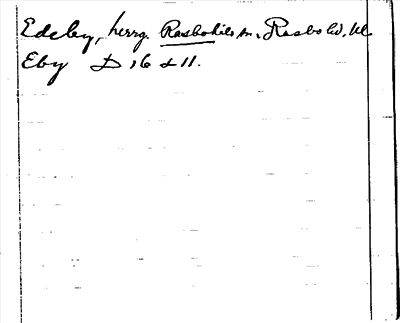 Edeby, herrg. Rasbokils sn, Rasbo hd, Ul
Eby D 16 d 11.